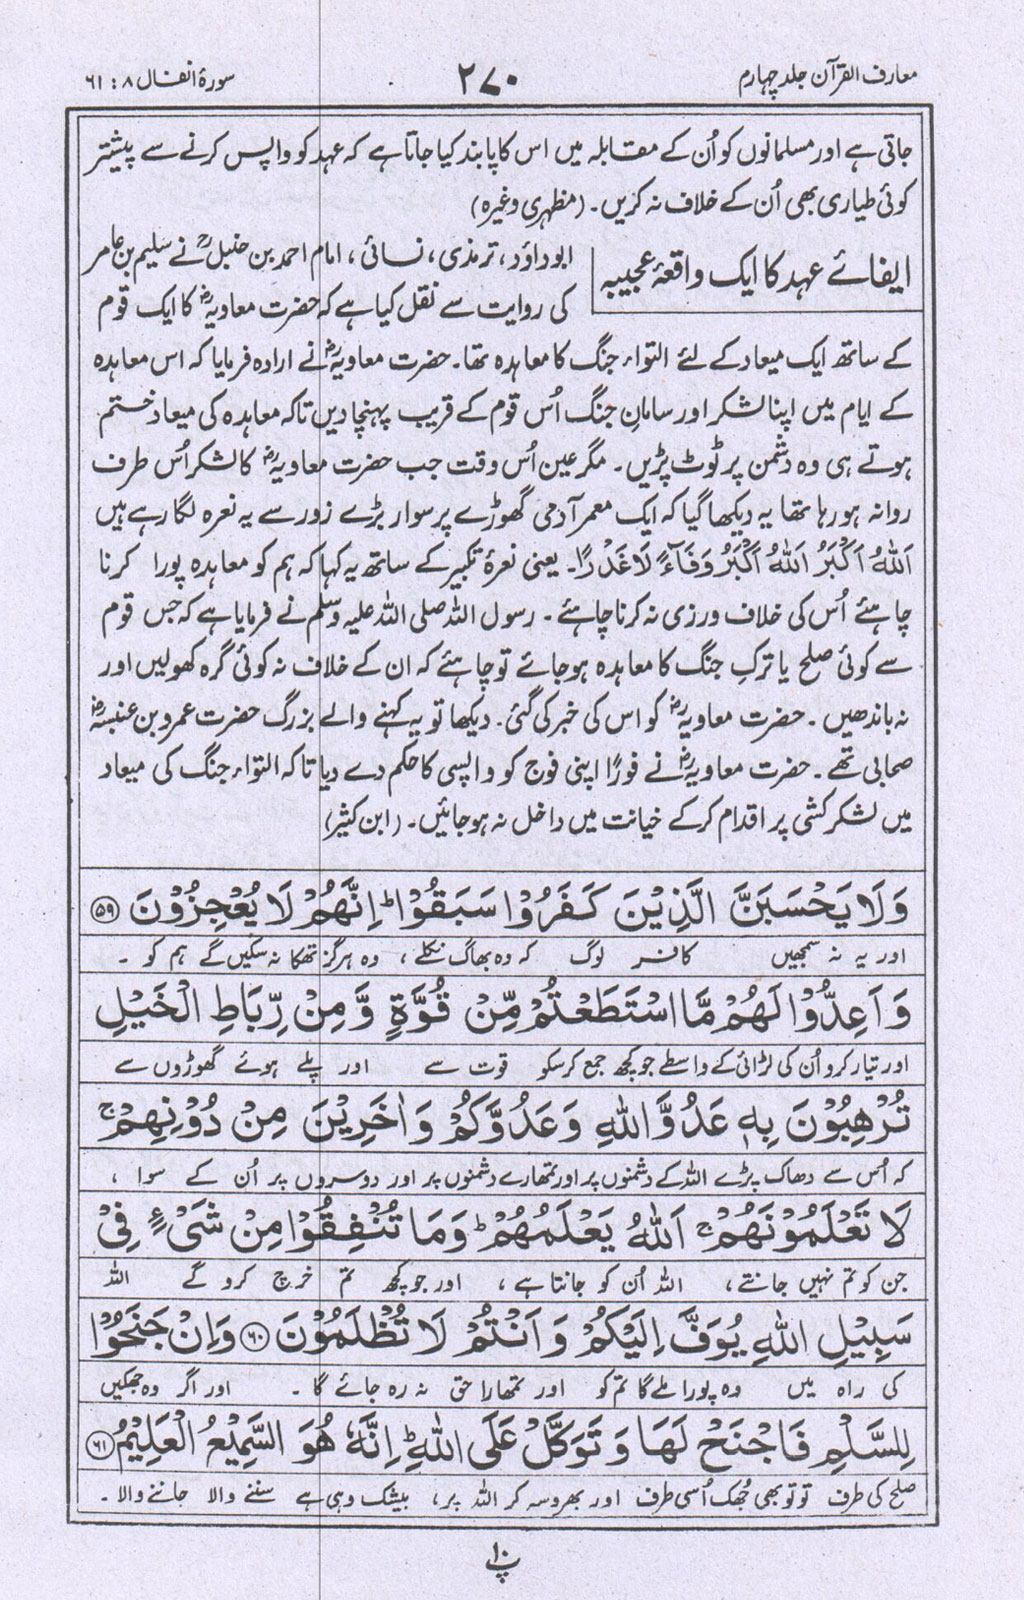 معارف القرآن جلد چہارم
۲۷۰
سورۂ انفال ۸ : ۶۱
جاتی ہے اور مسلمانوں کو اُن کے مقابلہ میں اس کا پابند کیا جاتا ہے کہ عہد کو واپس کرنے سے پیشتر
کوئی طیاری بھی اُن کے خلاف نہ کریں۔ (مظہری وغیرہ)
ایفائے عہد کا ایک واقعۂ عجیبہ
ابوداؤد، ترمذی، نسائی، امام احمد بن حنبلؒ نے سلیم بن عامر
کی روایت سے نقل کیا ہے کہ حضرت معاویہؓ کا ایک قوم
کے ساتھ ایک میعاد کے لئے التواء جنگ کا معاہدہ تھا۔ حضرت معاویہؓ نے ارادہ فرمایا کہ اس معاہدہ
کے ایام میں اپنا لشکر اور سامانِ جنگ اُس قوم کے قریب پہنچا دیں تاکہ معاہدہ کی میعاد ختم
ہوتے ہی وہ دشمن پر ٹوٹ پڑیں۔ مگر عین اُس وقت جب حضرت معاویہؓ کا لشکر اُس طرف
روانہ ہو رہا تھا یہ دیکھا گیا کہ ایک معمر آدمی گھوڑے پر سوار بڑے زور سے یہ نعرہ لگا رہے ہیں
اَللّٰہُ اَکْبَرُ اَللّٰہُ اَکْبَرُ وَفَآءً لَا غَدْرًا۔ یعنی نعرۂ تکبیر کے ساتھ یہ کہا کہ ہم کو معاہدہ پورا کرنا
چاہئے اُس کی خلاف ورزی نہ کرنا چاہئے۔ رسول اللہ صلی اللہ علیہ وسلم نے فرمایا ہے کہ جس قوم
سے کوئی صلح یا ترکِ جنگ کا معاہدہ ہو جائے تو چاہئے کہ ان کے خلاف نہ کوئی گرہ کھولیں اور
نہ باندھیں۔ حضرت معاویہؓ کو اس کی خبر کی گئی۔ دیکھا تو یہ کہنے والے بزرگ حضرت عمرو بن عنبسہؓ
صحابی تھے۔ حضرت معاویہؓ نے فورًا اپنی فوج کو واپسی کا حکم دے دیا تاکہ التواء جنگ کی میعاد
میں لشکر کشی پر اقدام کرکے خیانت میں داخل نہ ہو جائیں۔ (ابن کثیر)
وَلَا یَحْسَبَنَّ الَّذِیْنَ کَفَرُوْا سَبَقُوْا ؕ اِنَّهُمْ لَا یُعْجِزُوْنَ ﴿۵۹﴾
اور یہ نہ سمجھیں کافر لوگ کہ وہ بھاگ نکلے، وہ ہرگز تھکا نہ سکیں گے ہم کو۔
وَاَعِدُّوْا لَهُمْ مَّا اسْتَطَعْتُمْ مِّنْ قُوَّةٍ وَّمِنْ رِّبَاطِ الْخَیْلِ
اور تیار کرو اُن کی لڑائی کے واسطے جو کچھ جمع کر سکو قوت سے اور پلے ہوئے گھوڑوں سے
تُرْهِبُوْنَ بِهٖ عَدُوَّ اللّٰهِ وَعَدُوَّكُمْ وَاٰخَرِیْنَ مِنْ دُوْنِهِمْ ۚ
کہ اُس سے دھاک پڑے اللہ کے دشمنوں پر اور تمھارے دشمنوں پر اور دوسروں پر اُن کے سوا،
لَا تَعْلَمُوْنَهُمْ ۚ اَللّٰهُ یَعْلَمُهُمْ ؕ وَمَا تُنْفِقُوْا مِنْ شَیْءٍ فِیْ
جن کو تم نہیں جانتے، اللہ اُن کو جانتا ہے، اور جو کچھ تم خرچ کرو گے اللہ
سَبِیْلِ اللّٰهِ یُوَفَّ اِلَیْكُمْ وَاَنْتُمْ لَا تُظْلَمُوْنَ ﴿۶۰﴾ وَاِنْ جَنَحُوْا
کی راہ میں وہ پورا ملے گا تم کو اور تمھارا حق نہ رہ جائے گا۔ اور اگر وہ جھکیں
لِلسَّلْمِ فَاجْنَحْ لَهَا وَتَوَكَّلْ عَلَی اللّٰهِ ؕ اِنَّهٗ هُوَ السَّمِیْعُ الْعَلِیْمُ ﴿۶۱﴾
صلح کی طرف تو تو بھی جُھک اُسی طرف اور بھروسہ کر اللہ پر، بیشک وہی ہے سننے والا جاننے والا۔
پ۱۰